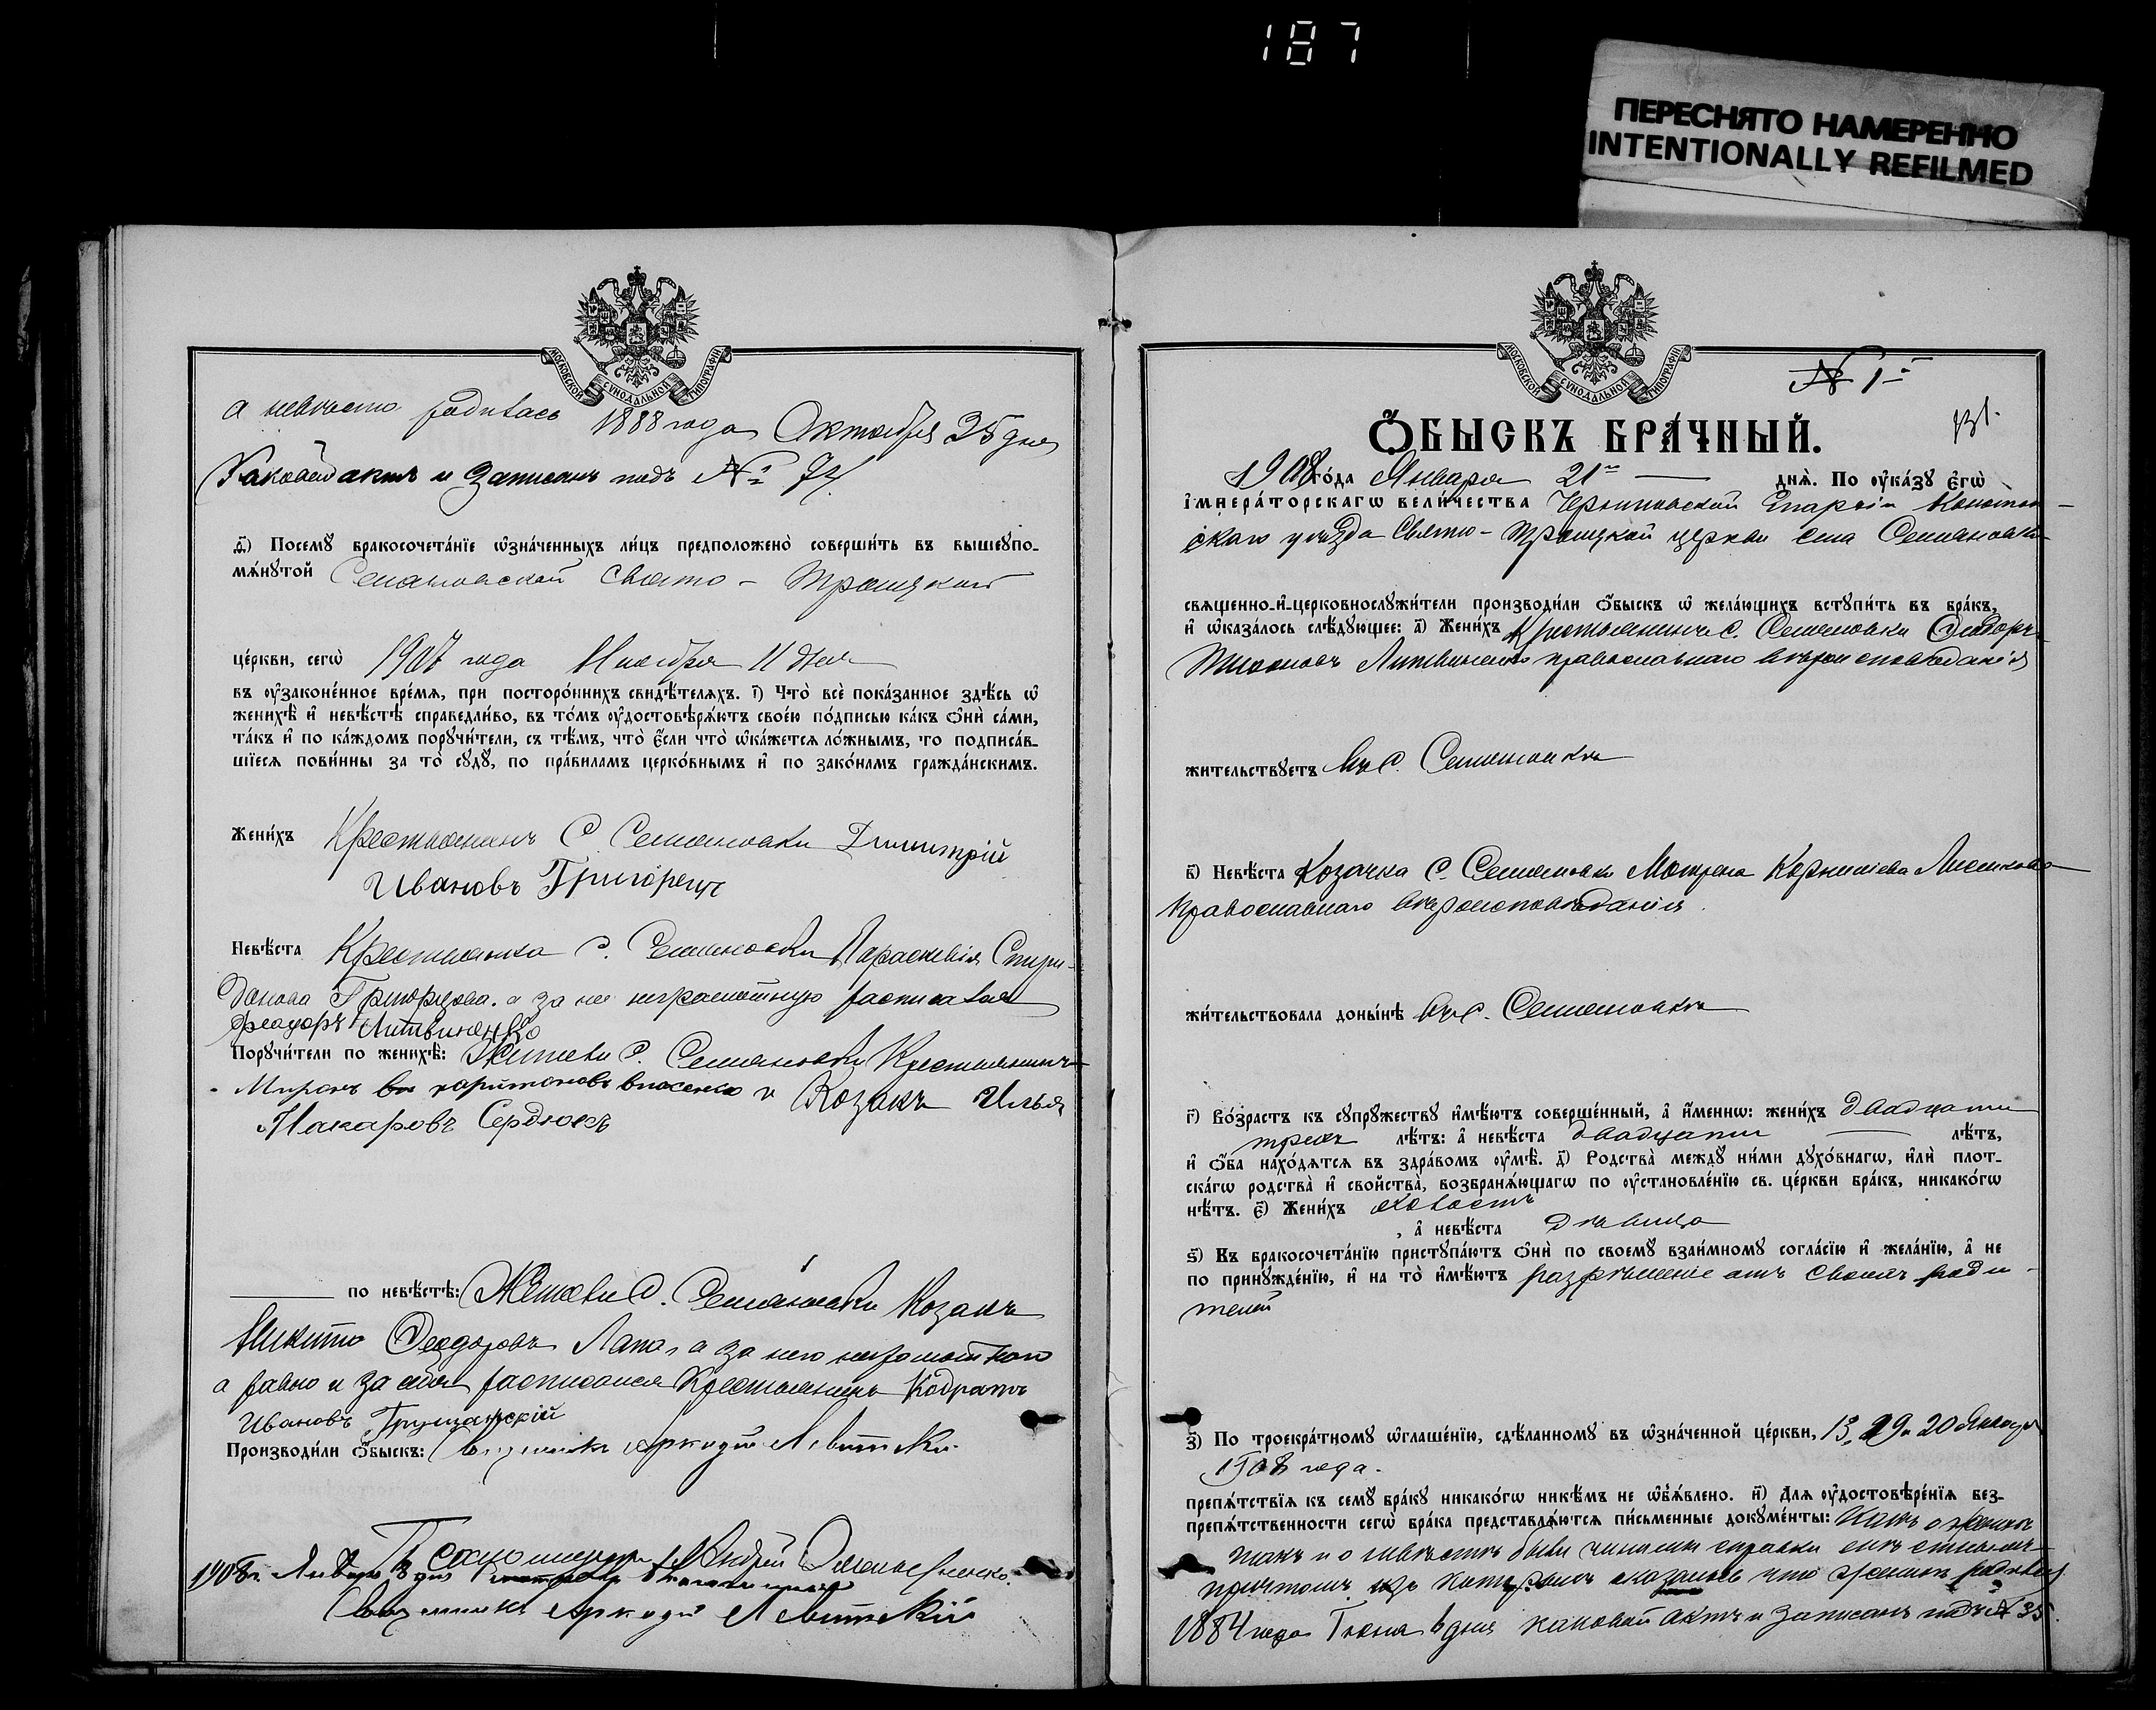 187
ПЕРЕСНЯТО НАМЕРЕННО
INTENTIONALLY REFILMED
МОСКОВСКОЙ СУНОДАЛЬНОЙ ТИПОГРАФІИ
а невеста родилась 1888 года Октября 25 дня
Каковой актъ и записанъ подъ № 74.
д҃) Посемꙋ̀ бракосочета́нїе ѡ҆зна́ченныхъ ли́цъ предположено̀ соверши́ть въ вышеꙋпо-
мѧ́нꙋтой Семяновской Свято-Троицкой
це́ркви, сегѡ̀ 1907 года Ноября 11 дня
въ ᲂу҆зако́ненное вре́мѧ, при посторо́ннихъ свидѣ́телѧхъ. і҃) Что̀ всѐ пока́занное здѣ́сь ѡ҆
женихѣ̀ и҆ невѣ́стѣ справедли́во, въ то́мъ ᲂу҆достовѣрѧ́ютъ свое́ю по́дписью ка́къ ѻ҆нѝ са́ми,
та́къ и҆ по ка́ждомъ порꙋчи́тели, съ тѣ́мъ, что̀ є҆́сли что̀ ѡ҆ка́жетсѧ ло́жнымъ, то подписа́в-
шїесѧ пови́нны за то̀ сꙋдꙋ̀, по пра́виламъ церко́внымъ и҆ по зако́намъ гражда́нскимъ.
Жени́хъ Крестьянинъ С. Семяновки Димитрій
Ивановъ Григорецъ
Невѣ́ста Крестьянка с. Семяновки Параскевія Спири-
донова Григорцова. а за нее неграмотную расписался
Феодоръ Литвиненко
Порꙋчи́тели по женихѣ̀: Жители С. Семяновки Крестьянинъ
Миронъ Харитоновъ и Козакъ Илья
Макаровъ Сердюкъ
по невѣ́стѣ: Жители С. Семяновки Козакъ
Никита Феодоровъ Лапа, а за него неграмотнаго
а равно и за себя расписался Крестьянинъ Кодратъ
Ивановъ Грищанскій
Производи́ли ѻ҆́быскъ: Священникъ Аркадій Левитскій
Псаломщикъ Андрей
1908 г. Января 8 дня
Священникъ Аркадій Левитскій
МОСКОВСКОЙ СУНОДАЛЬНОЙ ТИПОГРАФІИ
№ 1
131.
Ѻ҆́БЫСКЪ БРА́ЧНЫЙ.
1908 го́да Января 21 днѧ̀. По ᲂу҆ка́зꙋ є҆гѡ̀
і҆мпера́торскагѡ вели́чества Черниговской Епархіи Конотоп-
скаго уѣзда Свято-Троицкой церкви села Семяновки
свѧщенно-и҆-церковнослꙋжи́тели производи́ли ѻ҆́быскъ ѡ҆ жела́ющихъ встꙋпи́ть въ бра́къ,
и҆ ѡ҆каза́лось слѣ́дꙋющее: а҃) Жени́хъ Крестьянинъ С. Семяновки Феодоръ
Тихоновъ Литвиненко православнаго вѣроисповѣданія
жи́тельствꙋетъ въ С. Семяновкѣ
в҃) Невѣ́ста Козачка С. Семяновки Мотрона Корниліева Лысикова
православнаго вѣроисповѣданія.
жи́тельствовала доны́нѣ въ С. Семяновкѣ
г҃) Во́зрастъ къ сꙋпрꙋ́жествꙋ и҆мѣ́ютъ соверше́нный, а҆ и҆́меннѡ: жени́хъ двадцати
трехъ лѣ́тъ: а҆ невѣ́ста двадцати лѣ́тъ,
и҆ ѻ҆́ба нахо́дѧтсѧ въ здра́вомъ ᲂу҆мѣ̀. д҃) Родства̀ междꙋ̀ ни́ми дꙋхо́внагѡ, и҆лѝ плот-
ска́гѡ родства̀ и҆ свойства̀, возбранѧ́ющагѡ по ᲂу҆становле́нїю св. це́ркви бра́къ, никако́гѡ
нѣ́тъ. є҃) Жени́хъ холостъ
, а҆ невѣ́ста дѣвица
ѕ҃) Къ бракосочета́нїю пристꙋпа́ютъ ѻ҆нѝ по своемꙋ̀ взаи́мномꙋ согла́сїю и҆ жела́нїю, а҆ не
по принꙋжде́нїю, и҆ на то̀ и҆мѣ́ютъ разрѣшеніе отъ своихъ роди-
телей
з҃) По троекра́тномꙋ ѡ҆глаше́нїю, сдѣ́ланномꙋ въ ѡ҆зна́ченной це́ркви, 13, 19 и 20 Января
1908 года.
препѧ́тствїѧ къ семꙋ̀ бра́кꙋ никако́гѡ никѣ́мъ не ѡ҆б̾ѧ́влено. и҃) Длѧ ᲂу҆достовѣре́нїѧ без-
препѧ́тственности сегѡ̀ бра́ка представлѧ́ютсѧ пи́сьменные докꙋме́нты: Какъ о женихѣ
такъ и о невѣстѣ были чинимы справки симъ
причтомъ изъ которыхъ оказалось что женихъ родился
1884 года Іюня 6 дня каковой актъ и записанъ подъ № 35.